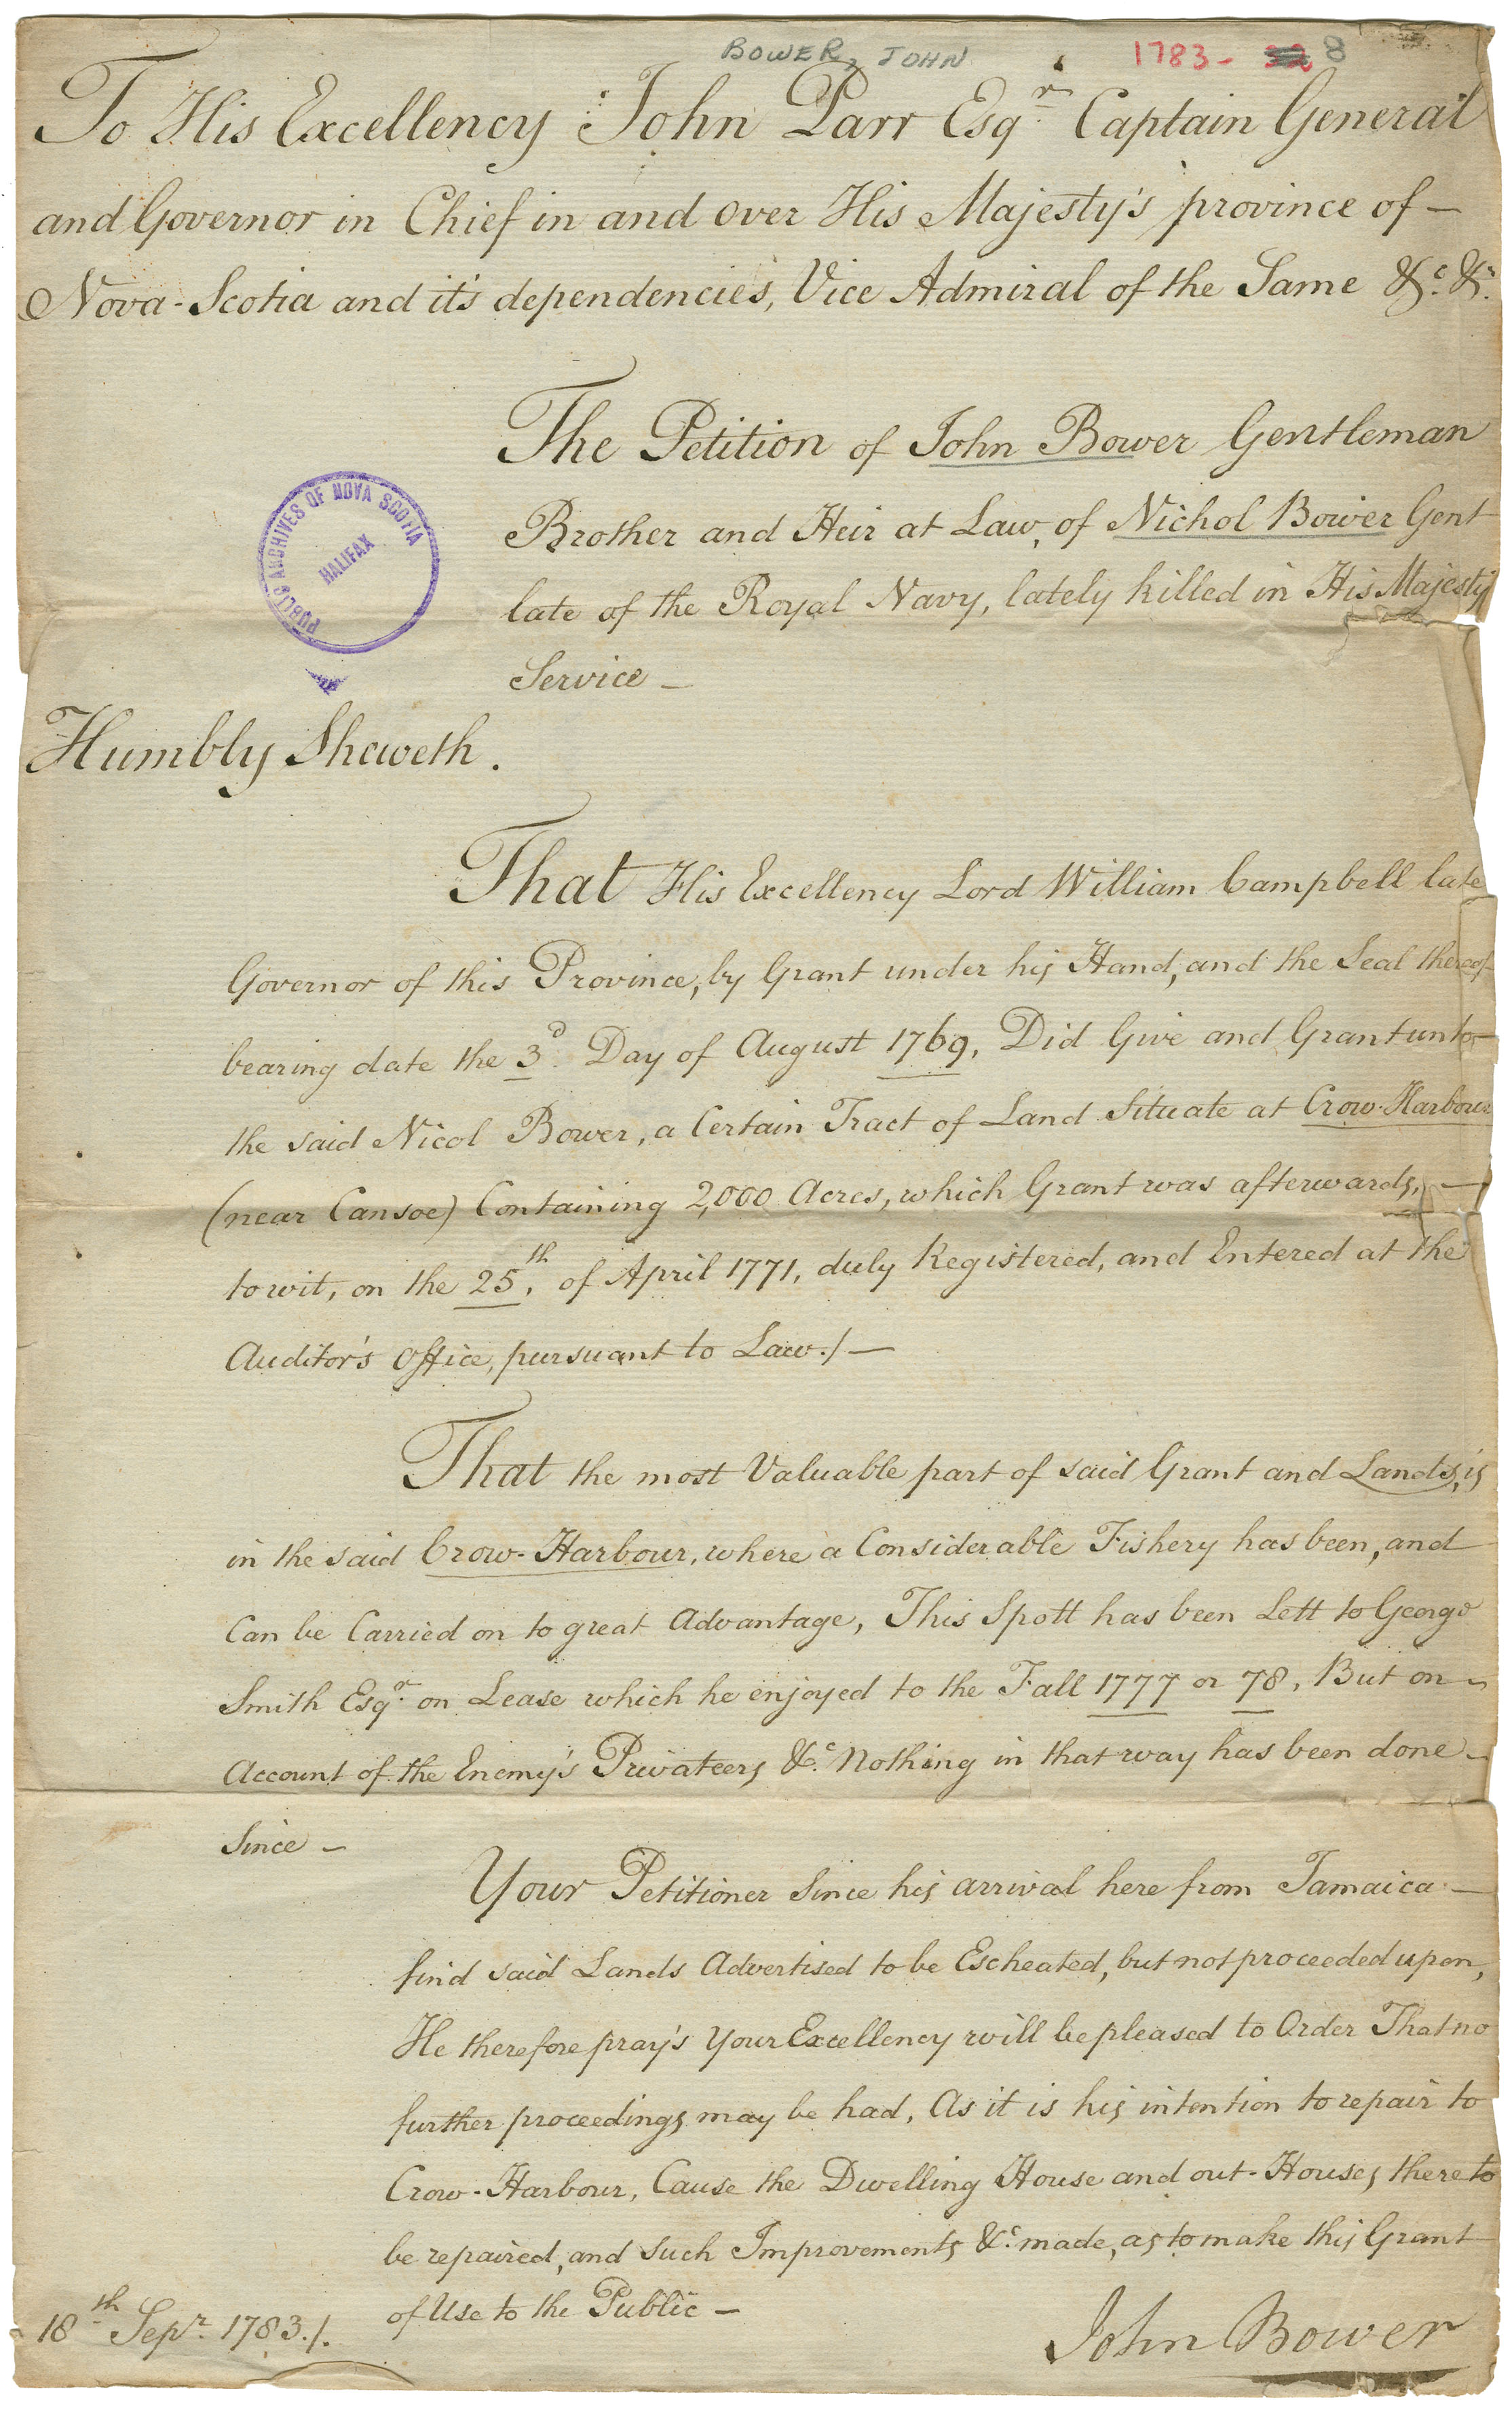 BOWER, JOHN 1783- 8
To His Excellency John Parr Esqr. Captain General
and Governor in Chief in and over His Majesty's province of —
Nova-Scotia and it's dependencies, Vice Admiral of the Same &c. &c.
The Petition of John Bower Gentleman
Brother and Heir at Law, of Nichol Bower Gent
late of the Royal Navy, lately killed in His Majesty
Service —
PUBLIC ARCHIVES OF NOVA SCOTIA
HALIFAX
Humbly Sheweth.
That His Excellency Lord William Campbell late
Governor of this Province, by Grant under his Hand, and the Seal thereof
bearing date the 3d. Day of August 1769, Did Give and Grant unto —
the said Nicol Bower, a Certain Tract of Land Situate at Crow-Harbour
(near Cansoe) Containing 2,000 Acres, which Grant was afterwards, —
to wit, on the 25th, of April 1771, duly Registered, and Entered at the
Auditor's Office, pursuant to Law./ —
That the most Valuable part of said Grant and Lands, is
in the said Crow-Harbour, where a Considerable Fishery has been, and
Can be Carried on to great Advantage, This Spott has been Lett to George
Smith Esqr. on Lease which he enjoyed to the Fall 1777 or 78, But on —
Account of the Enemy's Privateers &c. Nothing in that way has been done —
Since —
Your Petitioner Since his arrival here from Jamaica —
find said Lands Advertised to be Escheated, but not proceeded upon,
He therefore pray's Your Excellency will be pleased to Order That no
further proceedings may be had, As it is his intention to repair to
Crow-Harbour, Cause the Dwelling House and out-Houses there to
be repaired, and Such Improvements &c. made, as to make this Grant
of Use to the Public —
18th Sepr. 1783./.
John Bower